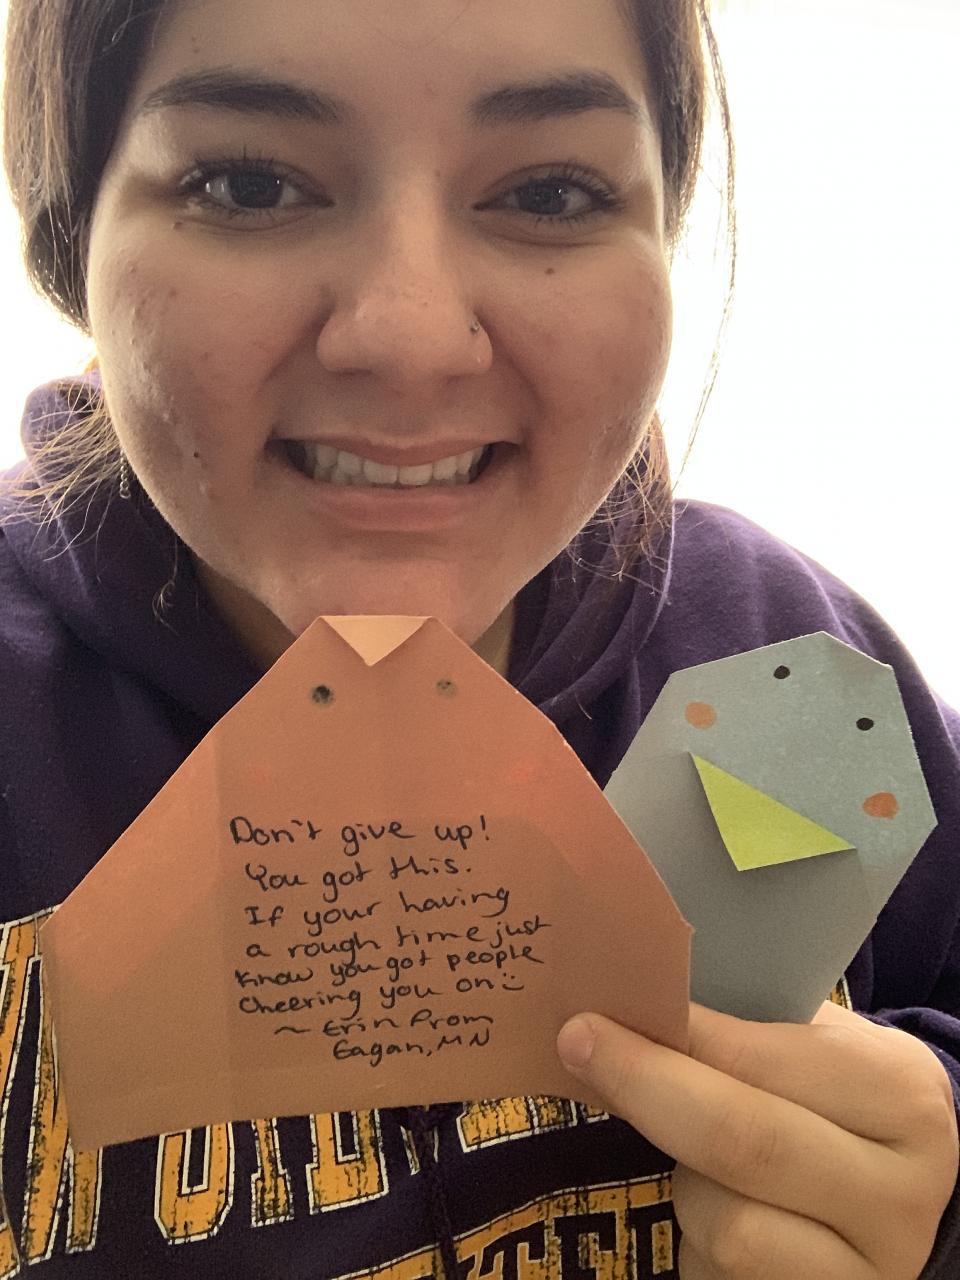 Don't give up!
You got this.
If your having
a rough time just
know you got people
cheering you on :)
~ Erin From
Eagan, MN